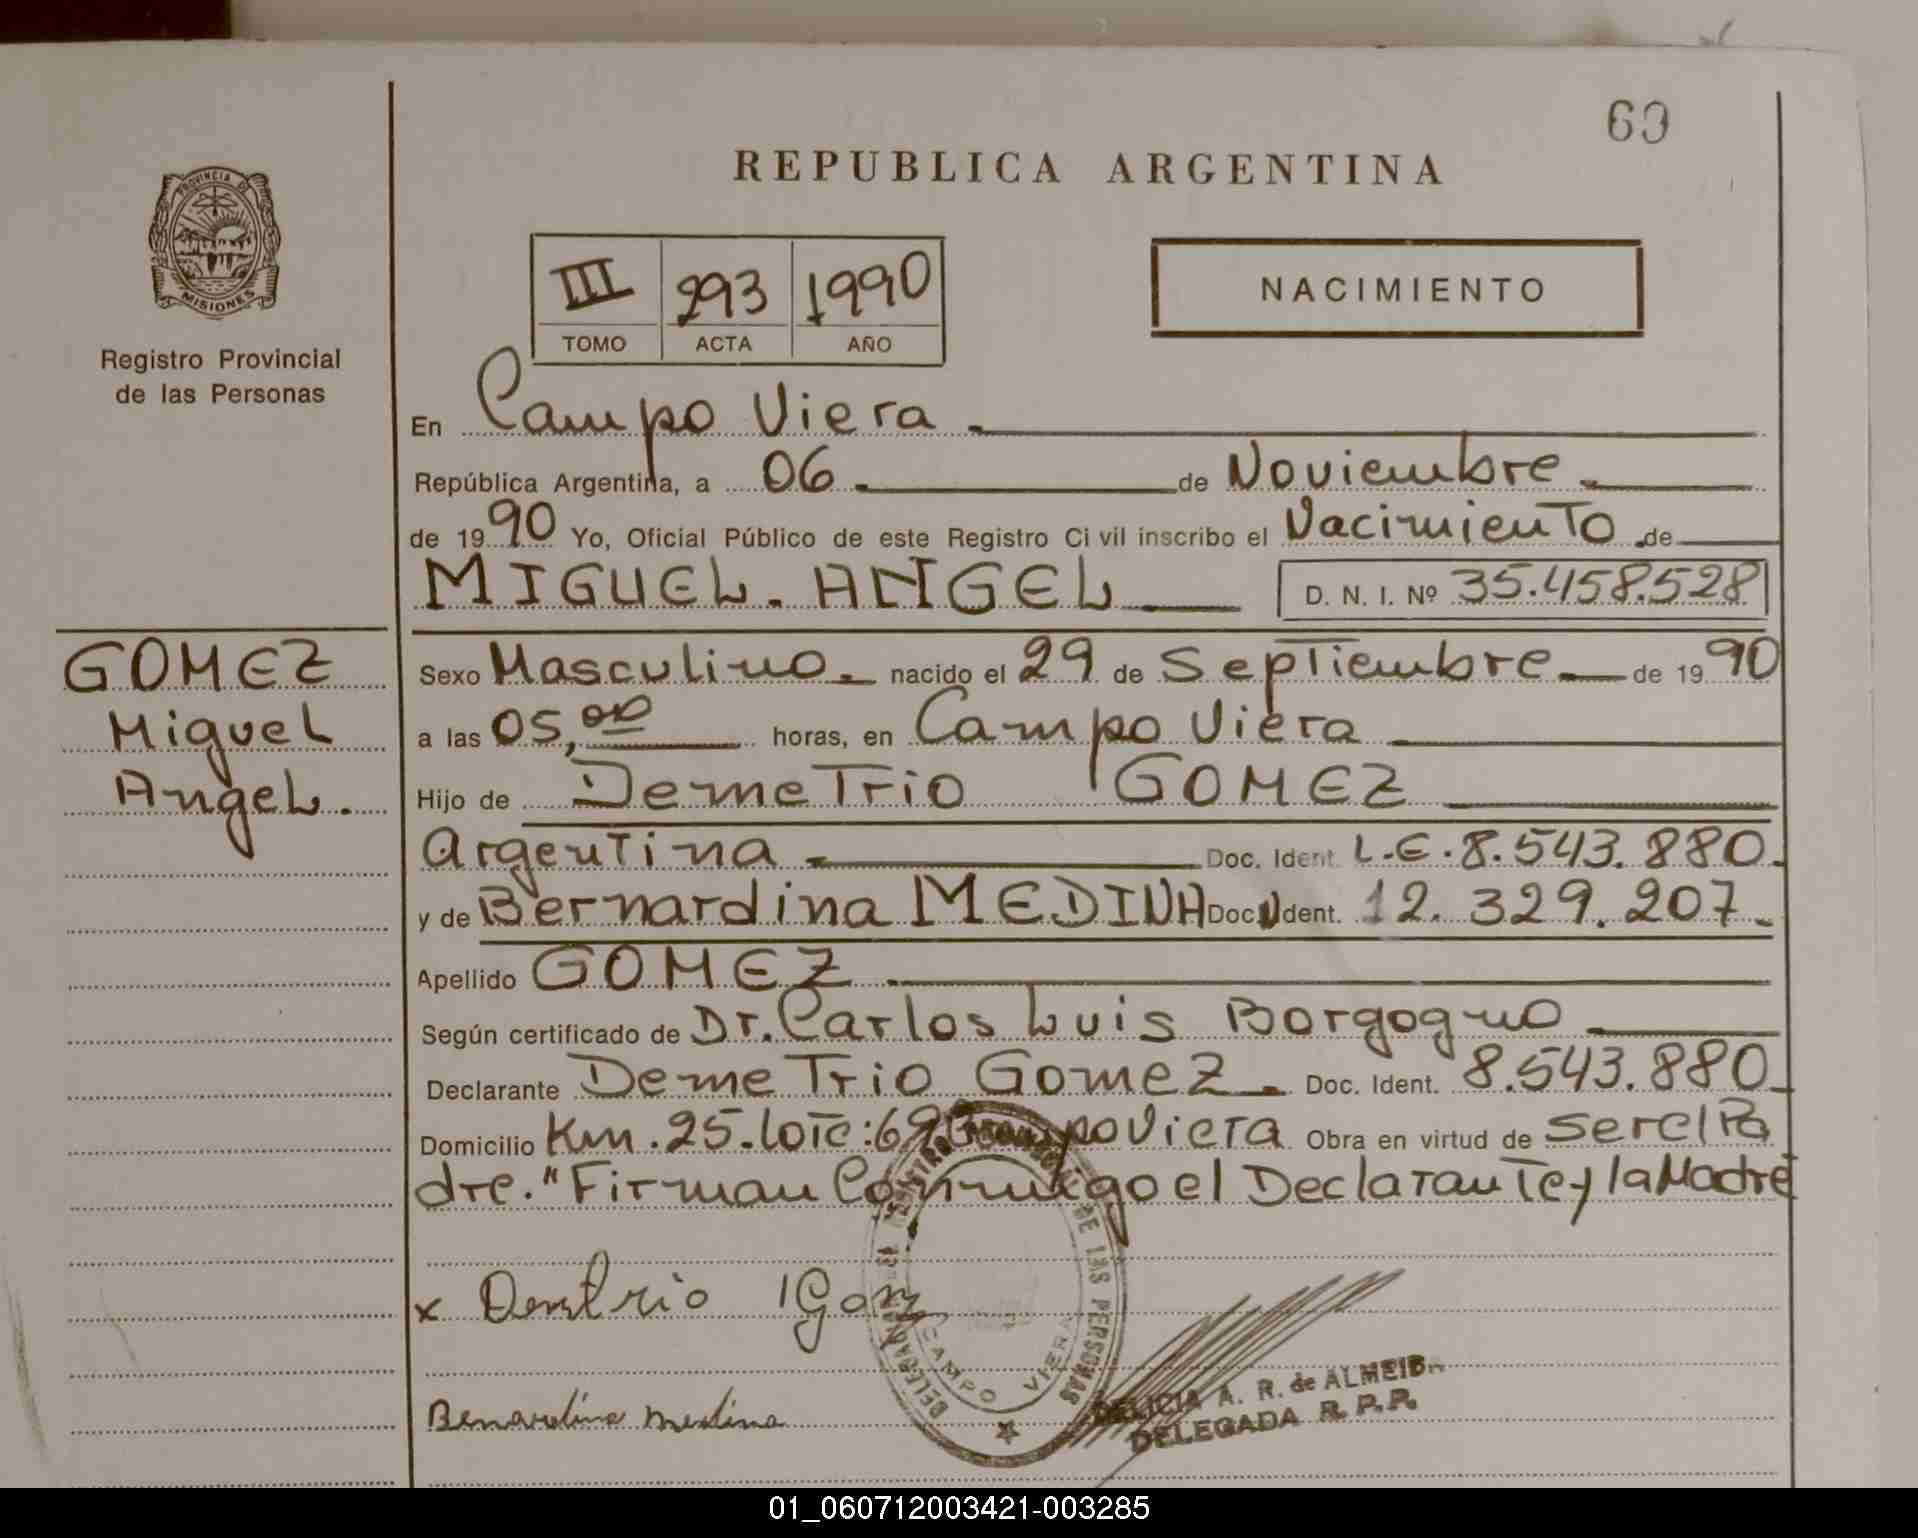 60
REPUBLICA ARGENTINA
PROVINCIA DE
MISIONES
Registro Provincial
de las Personas
III 293 1990
TOMO ACTA AÑO
NACIMIENTO
En Campo Viera
República Argentina, a 06 de Noviembre
de 1990 Yo, Oficial Público de este Registro Civil inscribo el Nacimiento de
MIGUEL. ANGEL D. N. I. Nº 35.458.528
GOMEZ
Miguel
Angel.
Sexo Masculino. nacido el 29 de Septiembre de 1990
a las 05,00 horas, en Campo Viera
Hijo de Demetrio GOMEZ
Argentina Doc. Ident. L.E.8.543.880.
y de Bernardina MEDINA Doc. Ident. 12.329.207.
Apellido GOMEZ
Según certificado de Dr. Carlos Luis Borgogno
Declarante Demetrio Gomez. Doc. Ident. 8.543.880
Domicilio Km.25.lote: Campo Viera Obra en virtud de ser el Pa
dre."Firman Conmigo el Declarante y la Madre
x Demtrio Gomz
Benardina medina
DELEGACION DEL REGISTRO PROVINCIAL DE LAS PERSONAS
CAMPO VIERA
A. R. de ALMEIDA
DELEGADA R. P. P.
01_060712003421-003285